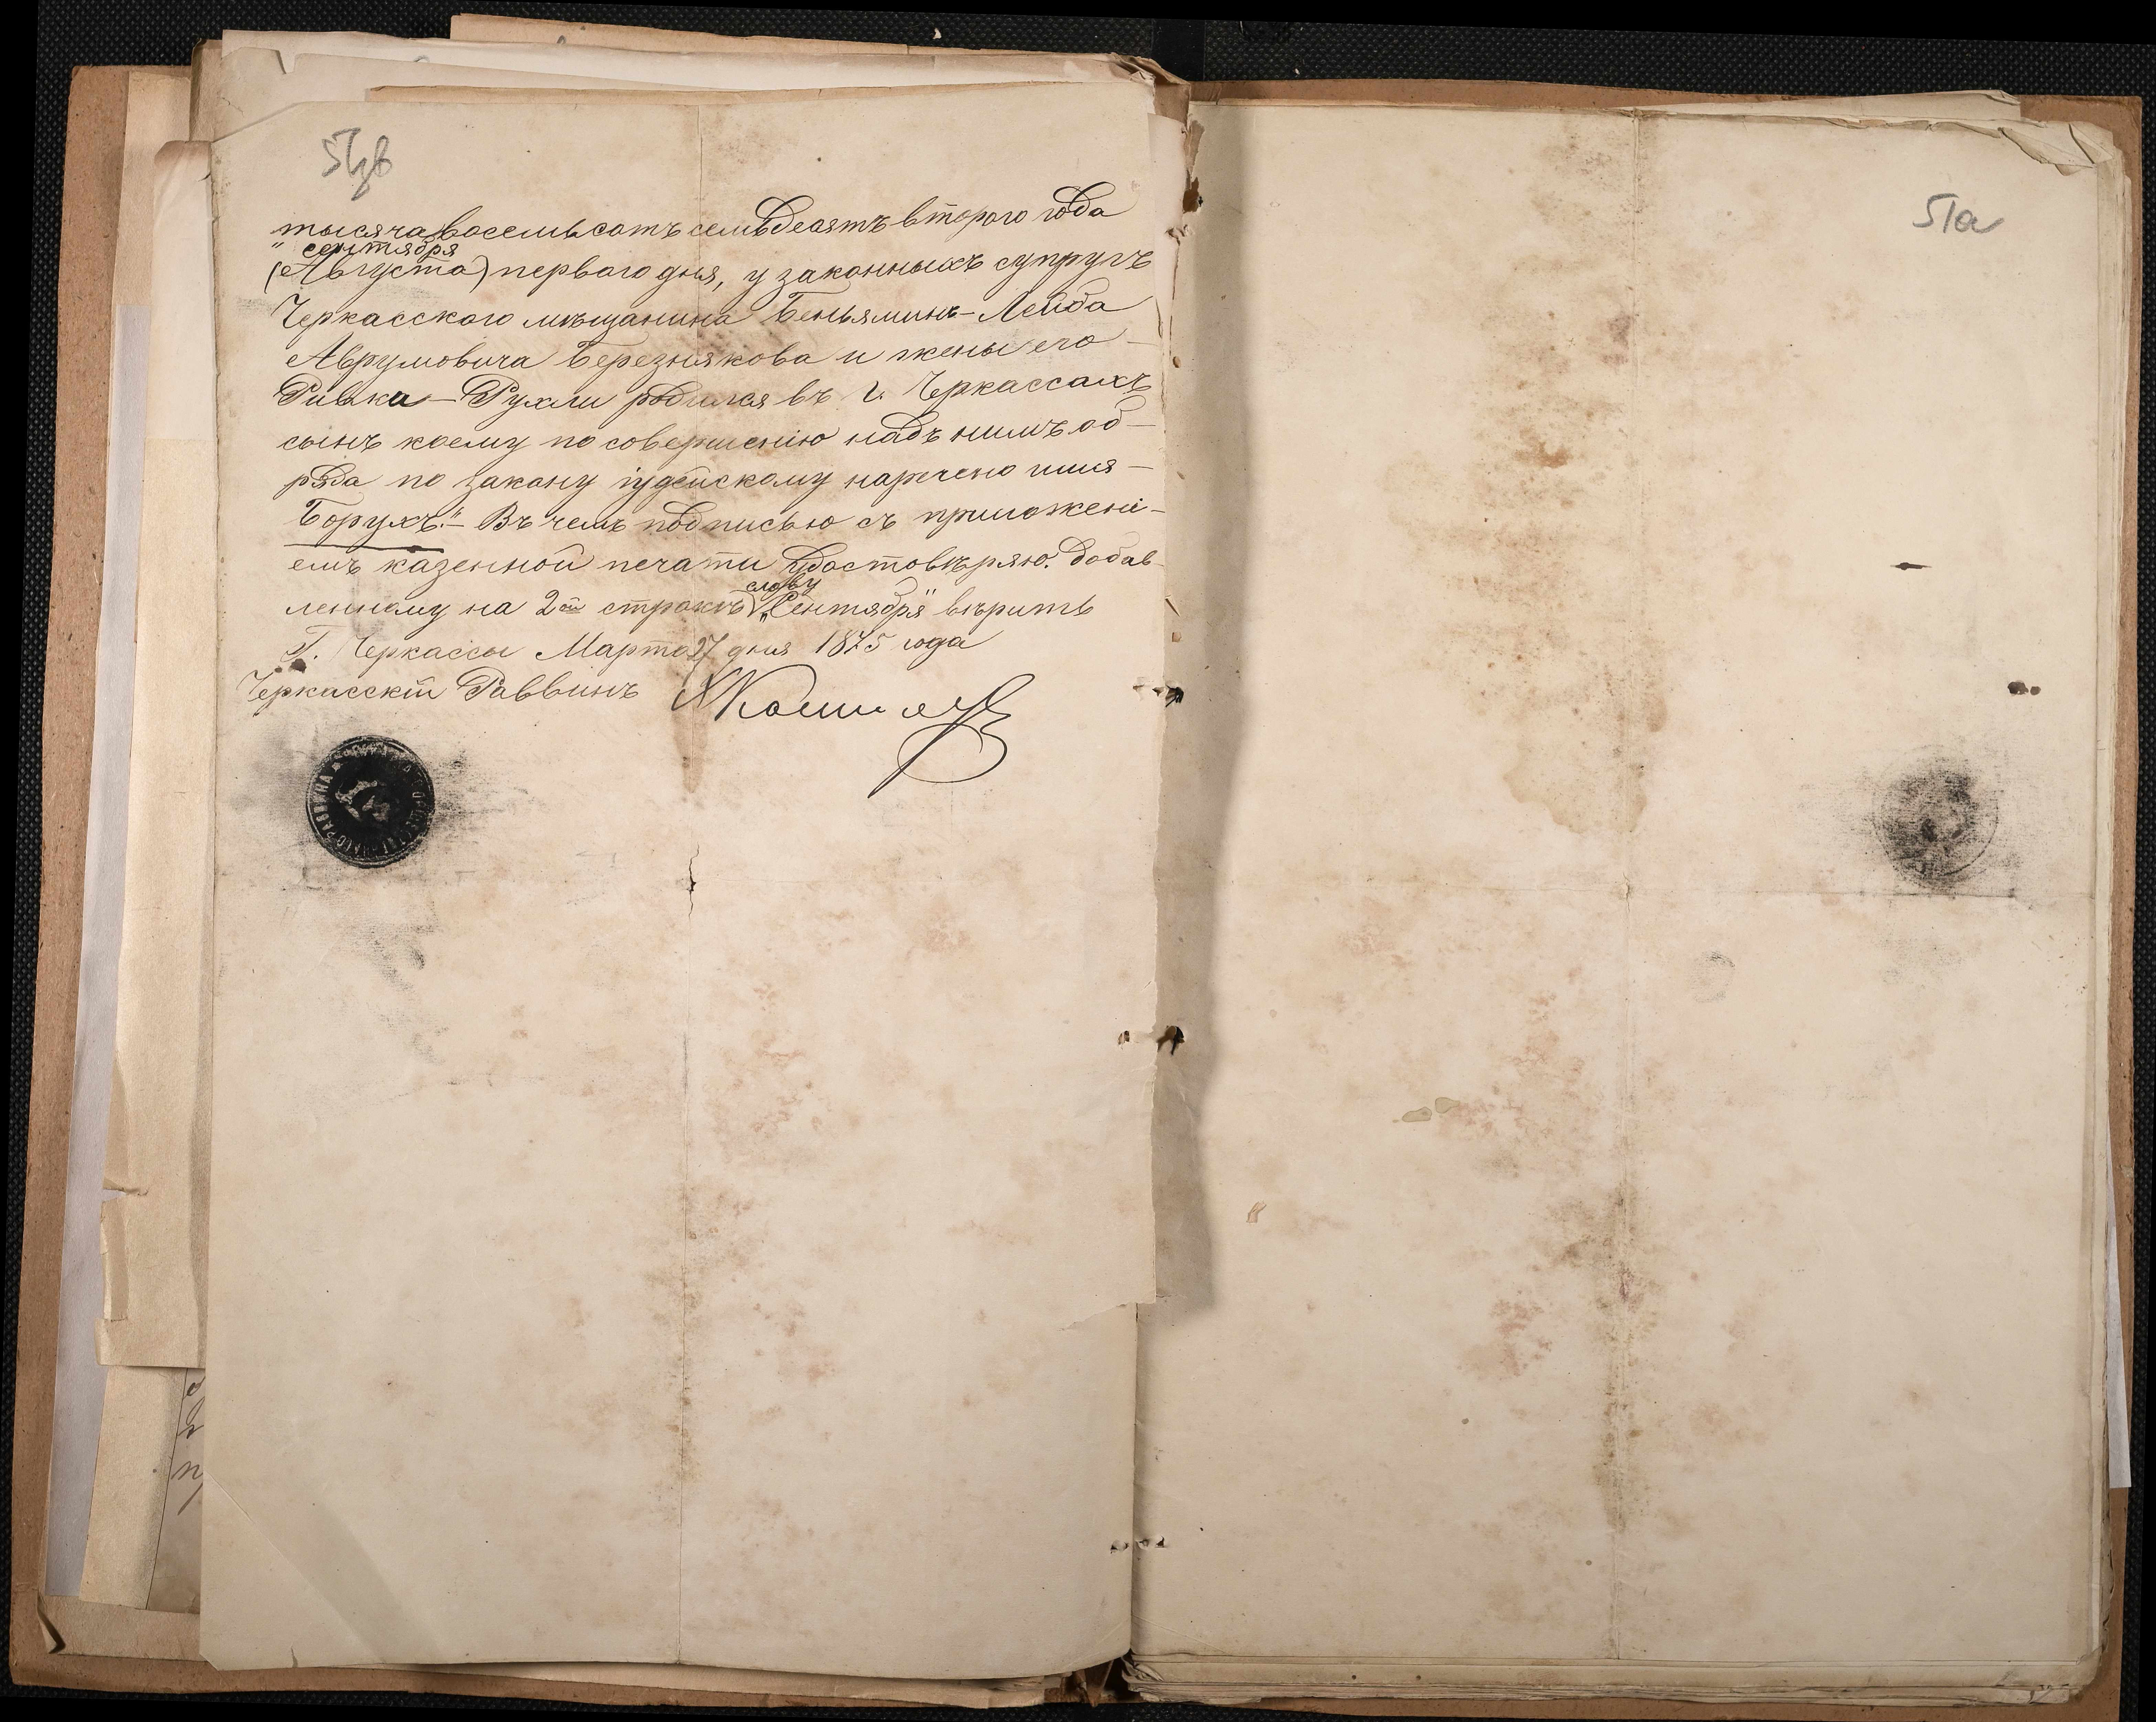 51об
тысяча восемьсотъ семьдесятъ втораго года
"сентября
(Августа) перваго дня, у законныхъ супругъ
Черкасскаго мѣщанина Беньяминъ-Лейба
Аврумовича Березнякова и жены его
Ривки-Рухли родился въ г. Черкассахъ
сынъ коему по совершенію надъ нимъ об-
ряда по закону іудейскому наречено имя
Борухъ". Въ чемъ подписью съ приложені-
емъ казенной печати удостовѣряю. Добав-
слову
ленному на 2ой строкѣ „Сентября" вѣрить
Г. Черкассы Марта 27 дня 1875 года
Черкасскій Раввинъ
РАВВИНА
51а